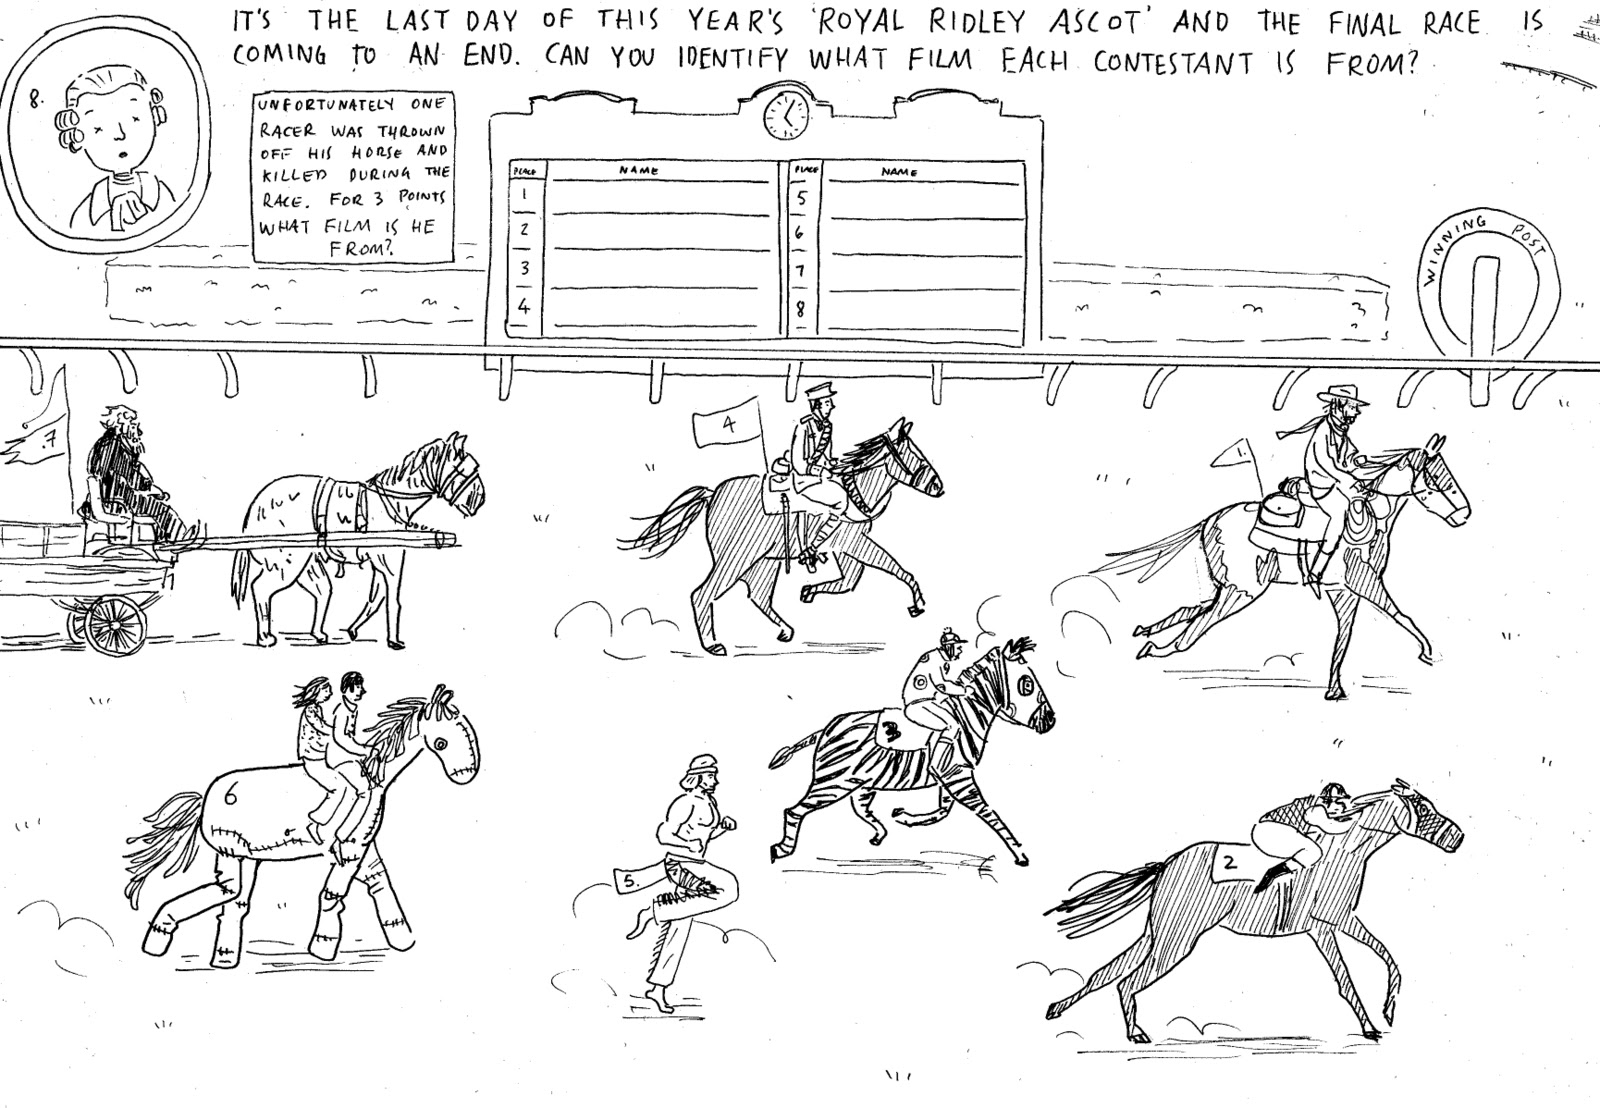 IT'S THE LAST DAY OF THIS YEAR'S 'ROYAL RIDLEY ASCOT' AND THE FINAL RACE IS
COMING TO AN END. CAN YOU IDENTIFY WHAT FILM EACH CONTESTANT IS FROM?
8.
UNFORTUNATELY ONE
RACER WAS THROWN
OFF HIS HORSE AND
KILLED DURING THE
RACE. FOR 3 POINTS
WHAT FILM IS HE
FROM?
PLACE NAME PLACE NAME
1 5
2 6
3 7
4 8
WINNING POST
7
4
1
3
6
5.
2